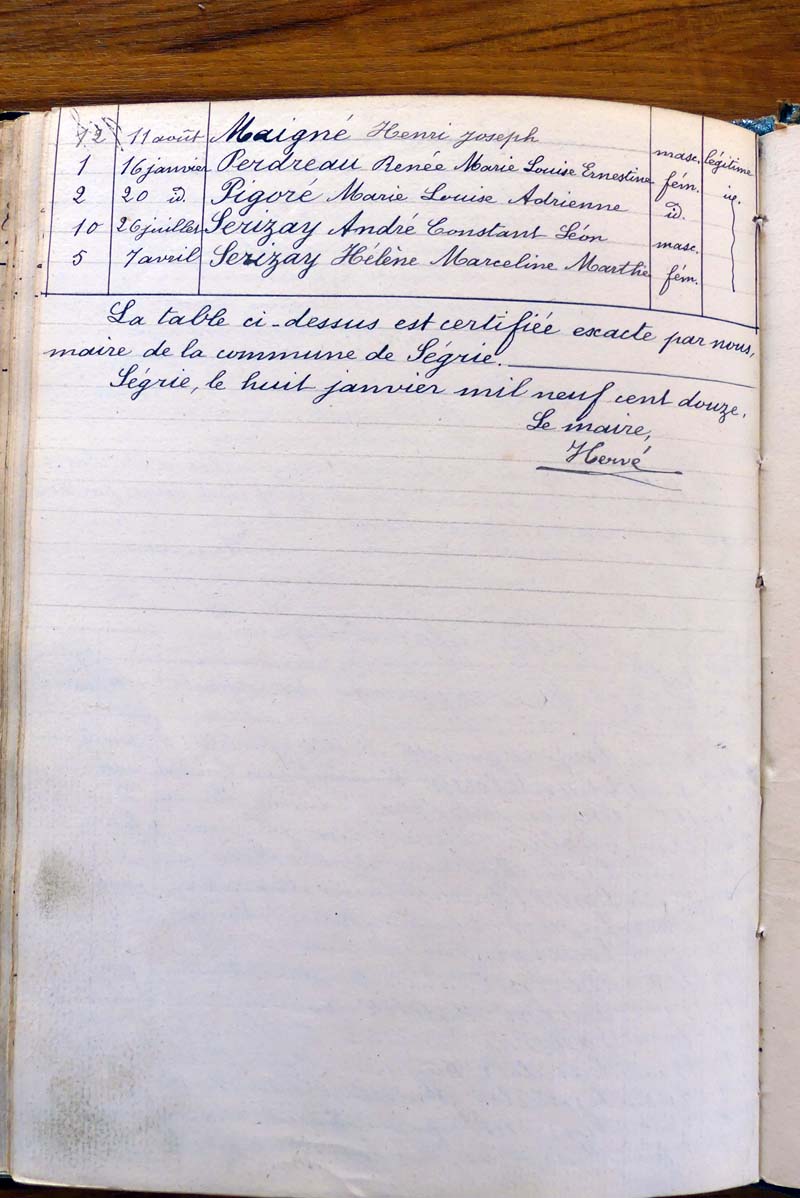 12 11 août Maigné Henri Joseph masc. légitime
1 16 janvier Perdreau Renée Marie Louise Ernestine fém. id.
2 20 id. Pigoré Marie Louise Adrienne id.
10 26 juillet Serizay André Constant Léon masc.
5 7 avril Serizay Hélène Marceline Marthe fém.
La table ci-dessus est certifiée exacte par nous,
maire de la commune de Ségrie.
Ségrie, le huit janvier mil neuf cent douze.
Le maire,
Hervé